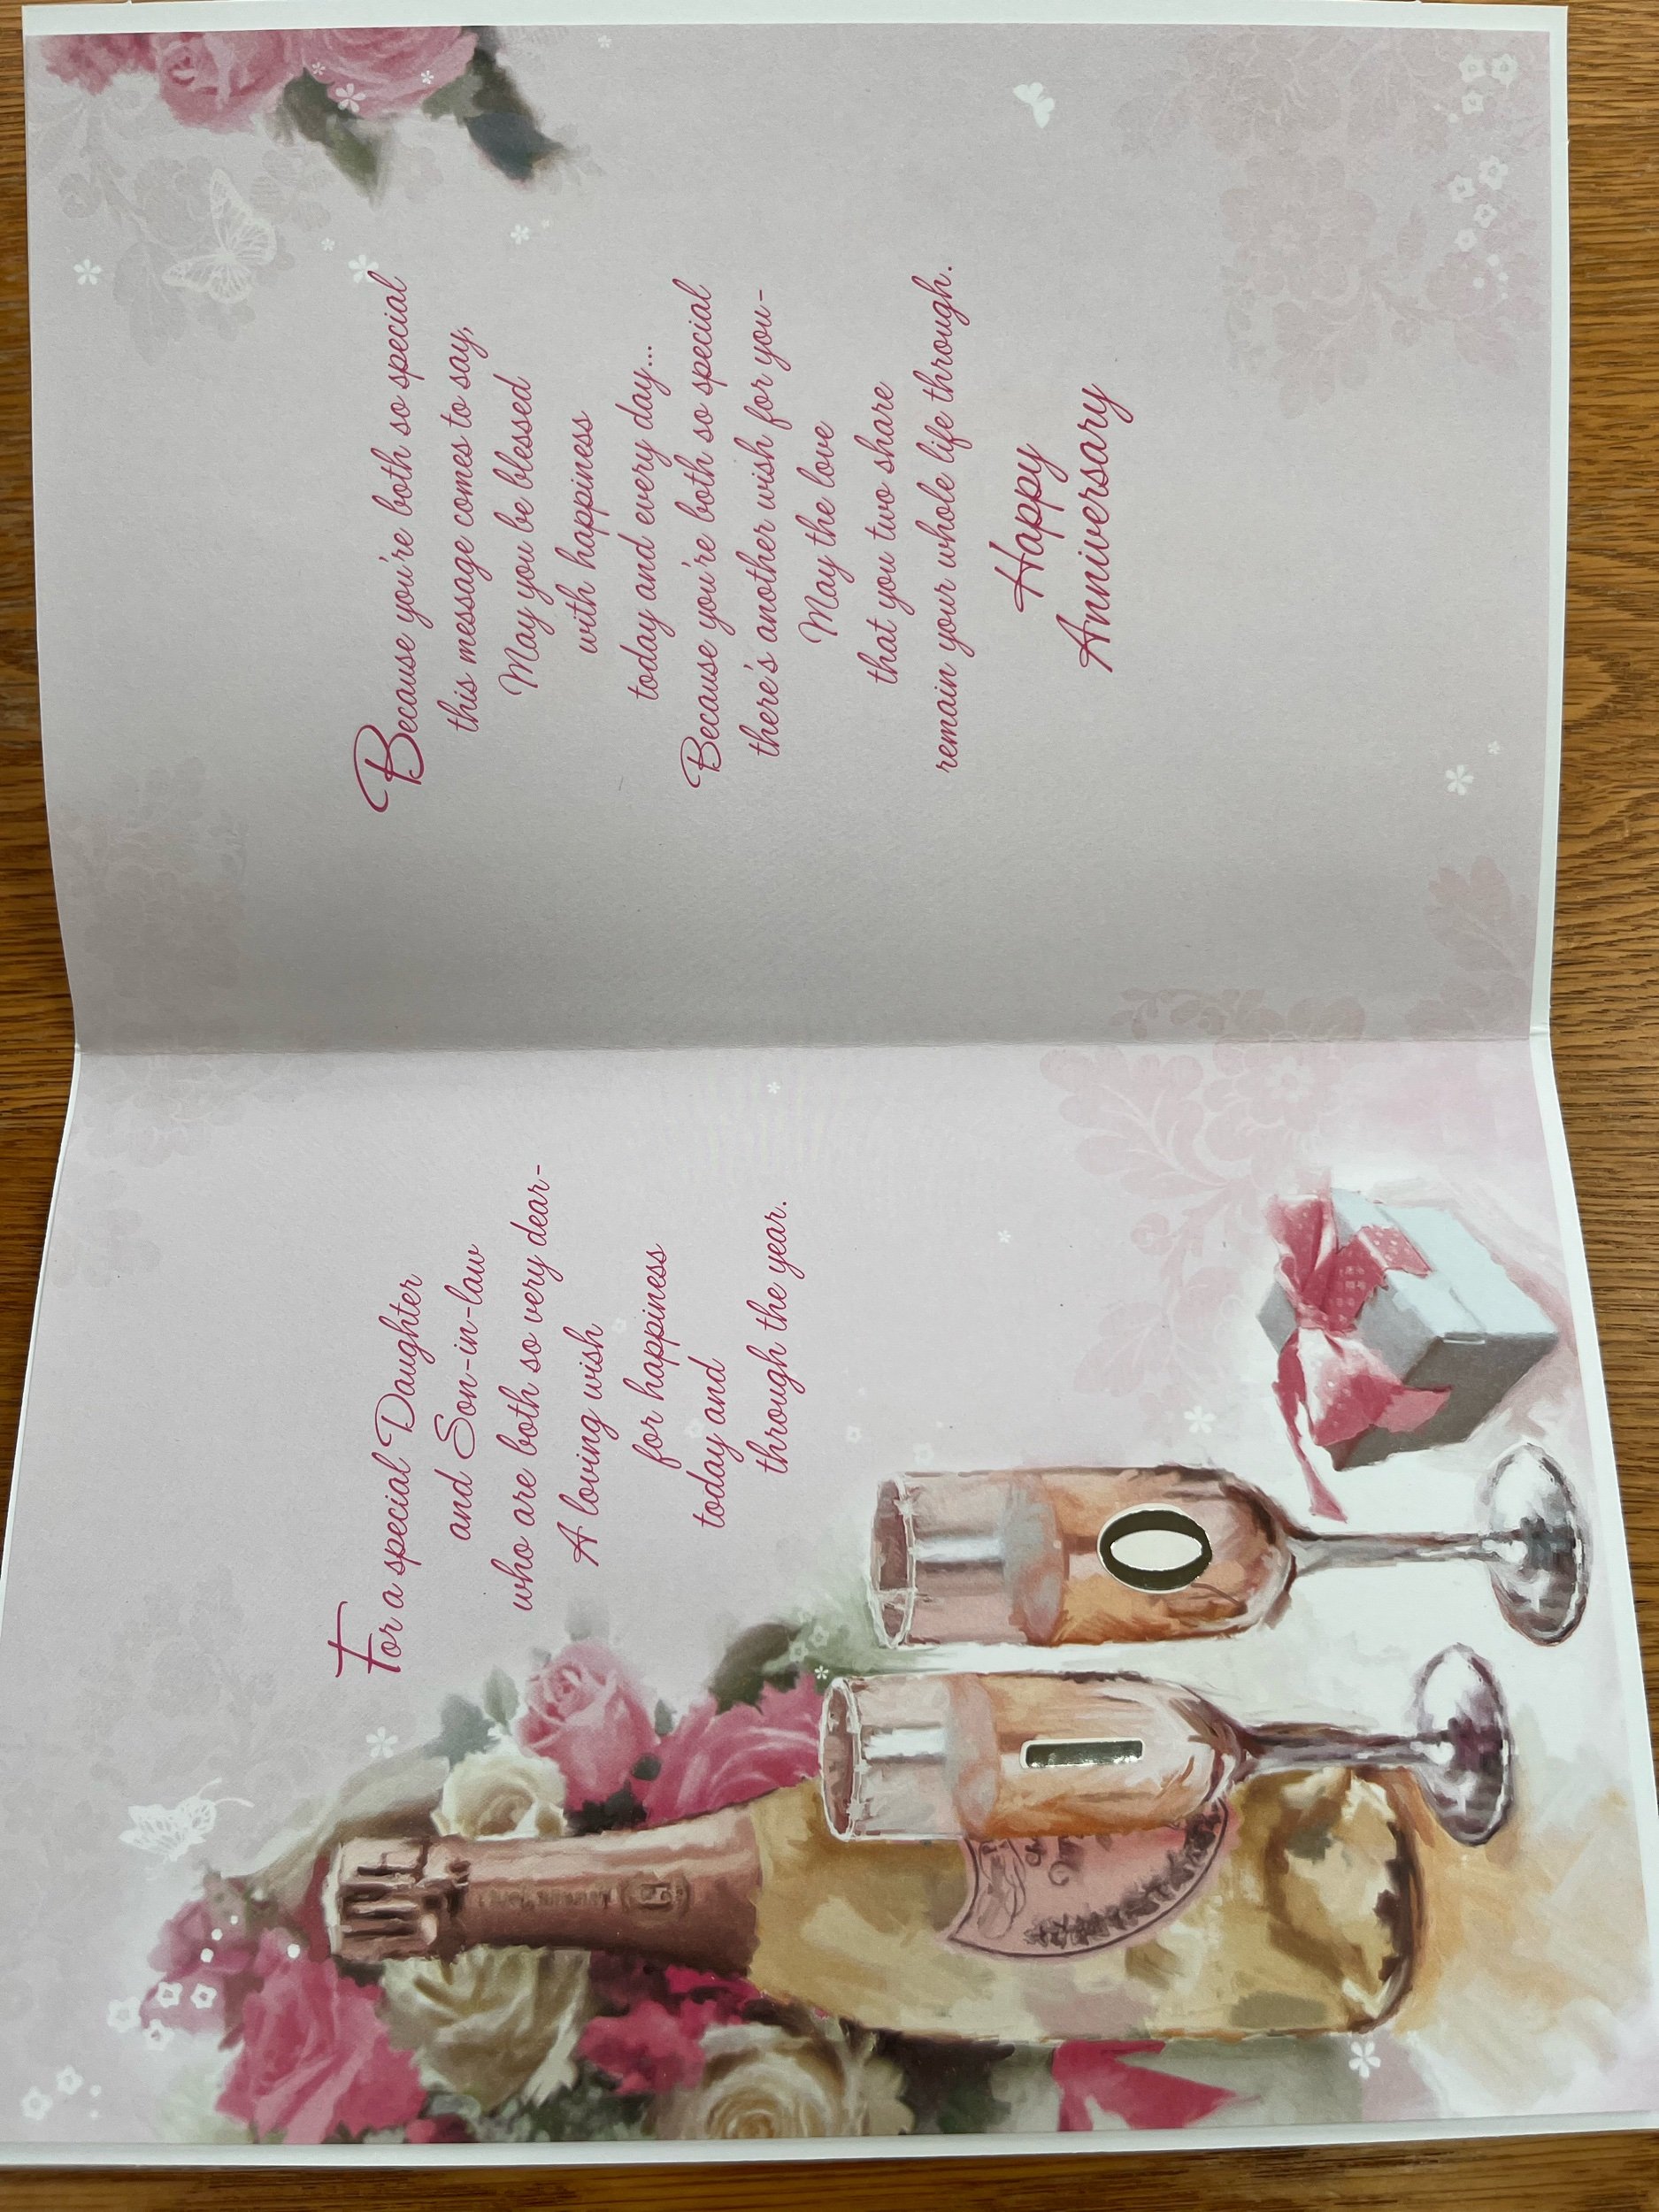 For a special Daughter
and Son-in-law
who are both so very dear-
A loving wish
for happiness
today and
through the year.
10
Because you're both so special
this message comes to say,
May you be blessed
with happiness
today and every day...
Because you're both so special
there's another wish for you-
May the love
that you two share
remain your whole life through.
Happy
Anniversary